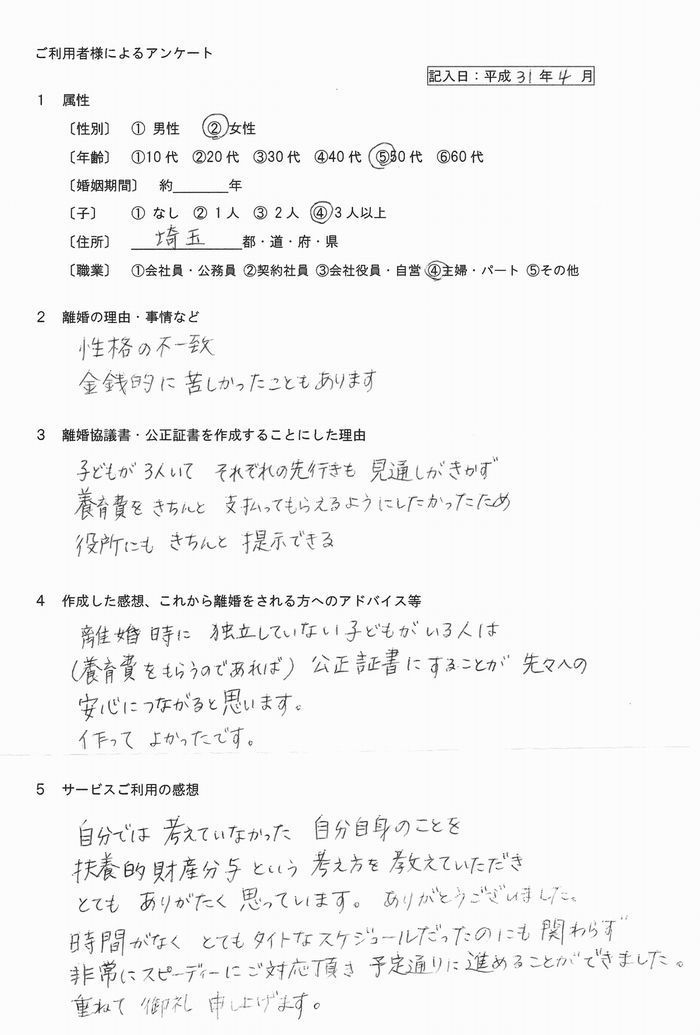 ご利用者様によるアンケート
記入日：平成 31 年 4 月
1 属性
〔性別〕 ① 男性 ② 女性
〔年齢〕 ①10代 ②20代 ③30代 ④40代 ⑤50代 ⑥60代
〔婚姻期間〕 約______年
〔子〕 ① なし ② 1人 ③ 2人 ④ 3人以上
〔住所〕 埼玉 都・道・府・県
〔職業〕 ①会社員・公務員 ②契約社員 ③会社役員・自営 ④主婦・パート ⑤その他
2 離婚の理由・事情など
性格の不一致
金銭的に苦しかったこともあります
3 離婚協議書・公正証書を作成することにした理由
子どもが3人いて それぞれの先行きも 見通しがきかず
養育費を きちんと 支払ってもらえるようにしたかったため
役所にも きちんと 提示できる
4 作成した感想、これから離婚をされる方へのアドバイス等
離婚時に 独立していない子どもがいる人は
(養育費をもらうのであれば) 公正証書にすることが 先々への
安心につながると思います。
作って よかったです。
5 サービスご利用の感想
自分では 考えていなかった 自分自身のことを
扶養的財産分与という 考え方を 教えていただき
とても ありがたく 思っています。 ありがとうございました。
時間がなく とてもタイトなスケジュールだったのにも関わらず
非常にスピーディーにご対応頂き 予定通りに進めることができました。
重ねて 御礼 申し上げます。